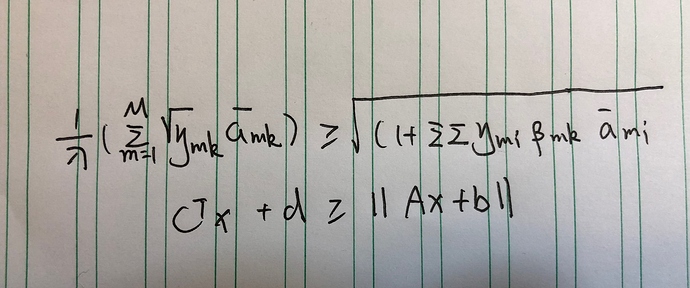 1/λ ( ∑_{m=1}^{M} √y_{mk} ā_{mk} ) ≥ √(1+ ΣΣ y_{mi} β_{mk} ā_{mi}
C^T x + d ≥ || Ax+b ||